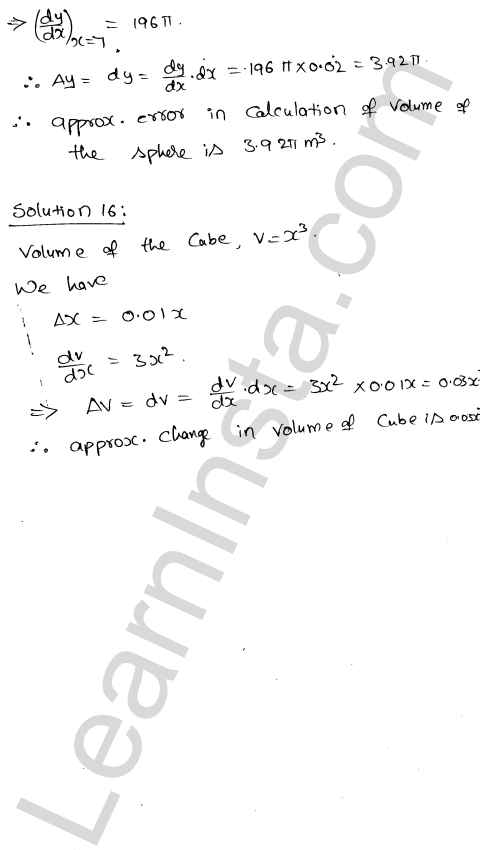 ⇒ (dy/dx)x=7 = 196π.
∴ Δy = dy = dy/dx · dx = 196 π × 0.02 = 3.92π.
∴ approx. error in calculation of volume of
the sphere is 3.92π m³.
Solution 16:
Volume of the Cube, V = x³.
We have
Δx = 0.01x
dv/dx = 3x².
⇒ ΔV = dv = dv/dx · dx = 3x² × 0.01x = 0.03x
∴ approx. change in volume of Cube is
LearnInsta.com